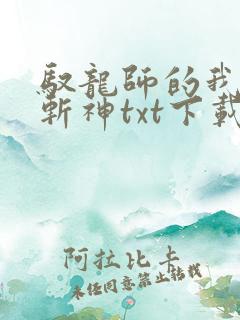 馭龍師的我
斬神txt下載
阿拉比卡
未经同意禁止转载